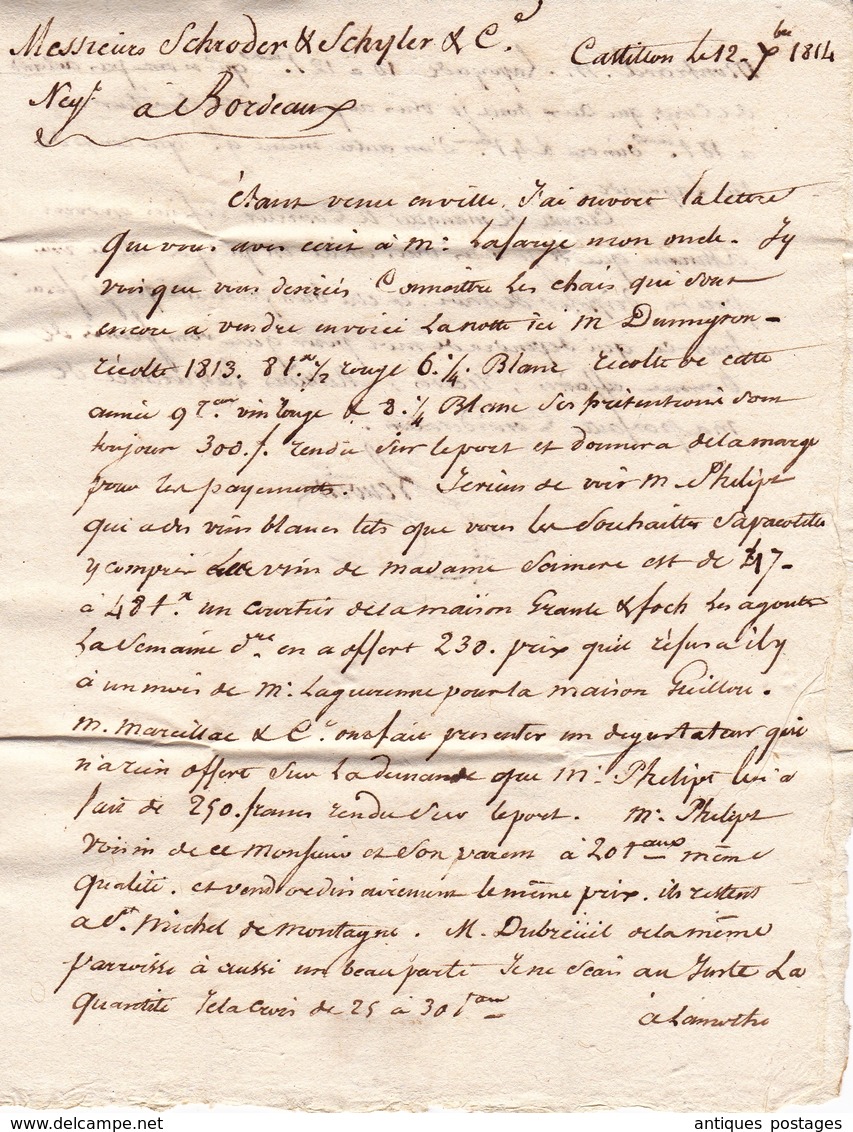 Messieurs Schroder & Schyler & Ce.
Castillon le 12. Xbre 1814
Negt. à Bordeaux
étant venu en ville, J'ai ouvert la lettre
que vous aves ecrit à Mr. Lafarge mon oncle. J'y
vois que vous desirés Connoitre les chais qui sont
encore a vendre en voici la notte ici M
récolte 1813. 8 tx. 1/2 rouge 6. 1/4. Blanc récolte de cette
année 9 Taux vin rouge & 8. 1/4 Blanc Ses prétentions sont
toujour 300 f. rendu sur le port et donnera de la marge
pour les payements. Je viens de voir M. Phelipt
qui a des vins blancs tels que vous les Souhaittes Sa pacotille
y compris le vin de madame est de 47-
à 48 tx. un courtier de la maison & foch les agouta
La Semaine dre en a offert 230. prix qu'il réfusa il y
à un mois de Mr. Laguerenne pour la maison Guillou.
M. Mareillac & Ce. ont fait presenter un degustateur qui
n'a rien offert Sur La demande que Mr. Phelipt lui a
fait de 250. francs rendu Sur le port. Mr. Phelipt
voisin de ce Monsieur et Son parent à 20 Taux même
qualité. et vend ordinairement le même prix. ils restent
a St. Michel de Montagne. M. Dubreüil de la même
parroisse à aussi un beau parti Je ne Scais au Juste La
quantité Je la Crois de 25 à 30 Taux
à Lamothe
antiques postages